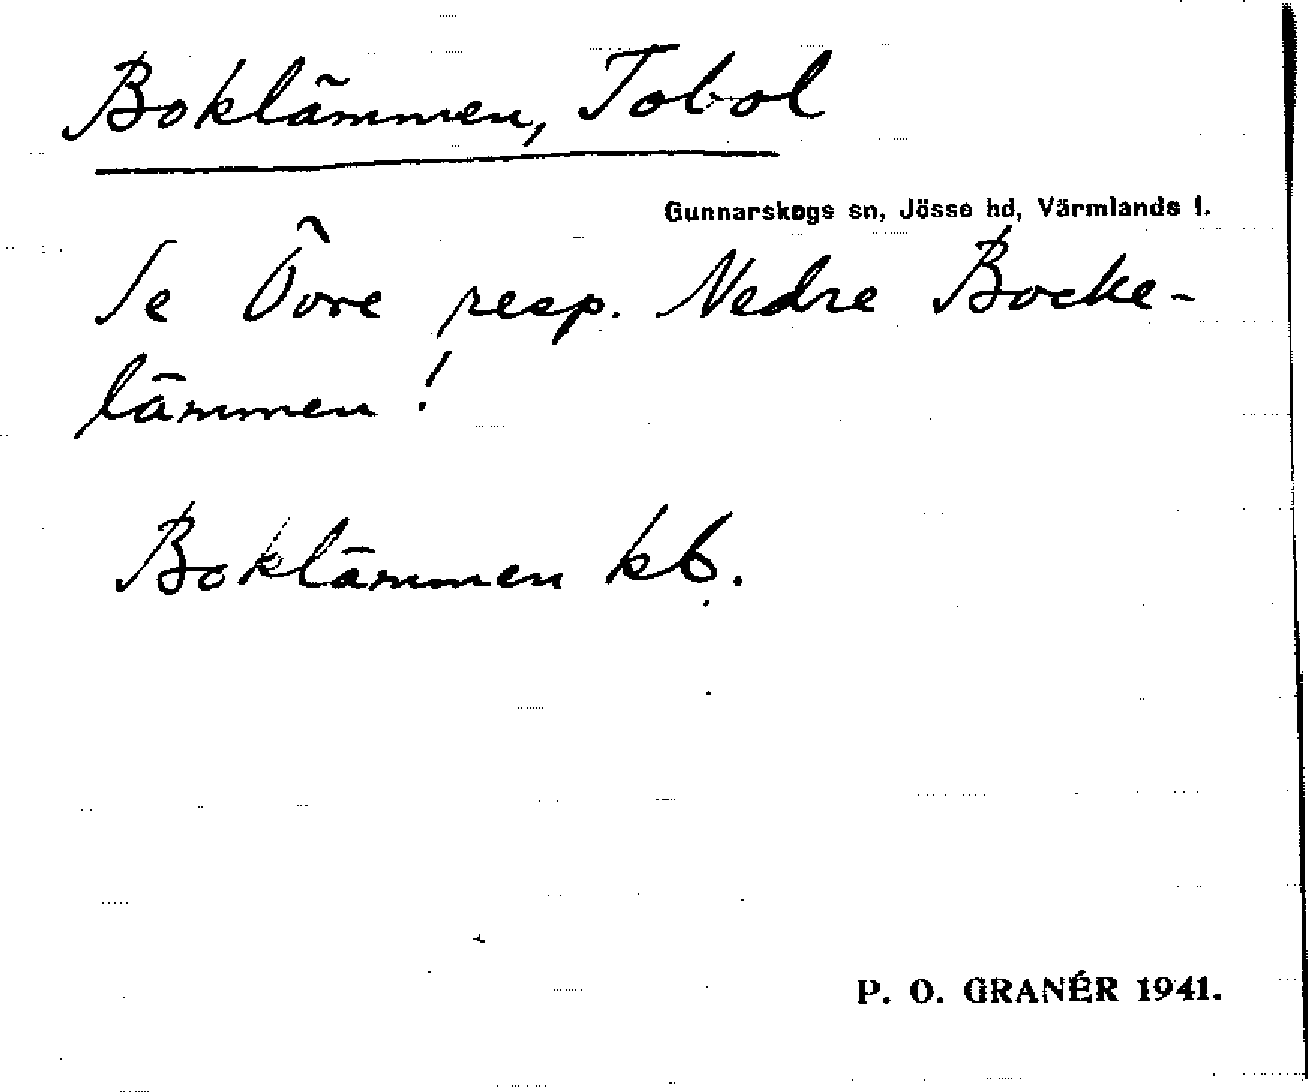 Boklämmen, Tobol
Gunnarskogs sn, Jösse hd, Värmlands l.
Se Övre resp. Nedre Bocke-
lämmen!
Boklämmen kb.
P. O. GRANÉR 1941.